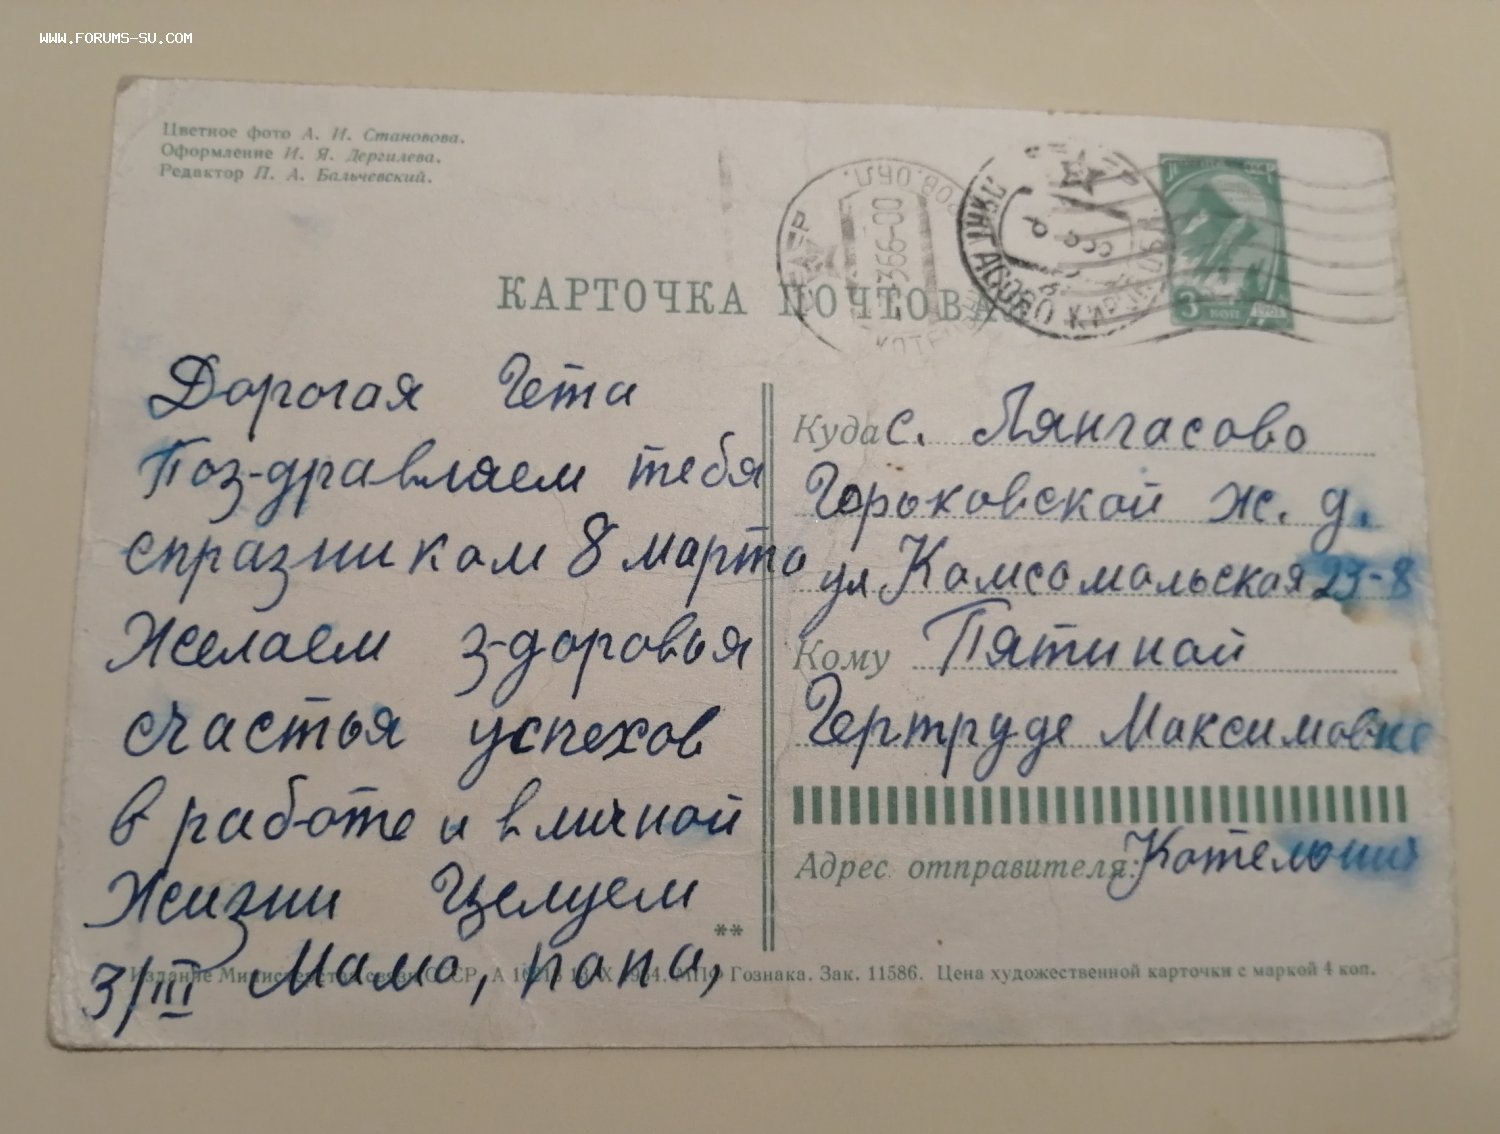 WWW.FORUMS-SU.COM
Цветное фото А. И. Становова.
Оформление И. Я. Дергилева.
Редактор П. А. Бальчевский.
КАРТОЧКА ПОЧТОВАЯ
3 КОП 1961
Дорогая Гета
Поз-дравляем тебя
с празником 8 марта
Желаем з-доровья
счастья успехов
в работе и в личной
Жизни Целуем
3/III Мама, папа,
Куда с. Лянгасово
Горьковской ж. д.
ул Комсомольская 23-8
Кому Пятиной
Гертруде Максимовне
Адрес отправителя: Котельнич
**
Издание Министерства связи СССР. А 1964. МПФ Гознака. Зак. 11586. Цена художественной карточки с маркой 4 коп.